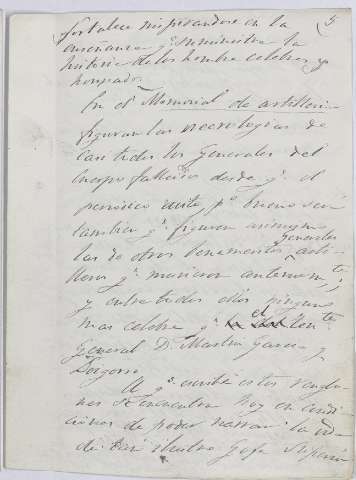 fortalece inspirandose en la 5
enseñanza q.e suministra la
historia de los hombres celebres y
honrados
En el Memorial de artilleria
figuran las necrologias de
casi todos los Generales del
cuerpo fallecidos desde q.e el
periodico existe, p.o bueno será
tambien q.e figuren
las de otros Generales arti-
lleros q.e murieron anteriorm.te;
y entre todos ellos ninguno
mas celebre q.e el Ten.te
General D. Martin Garcia y
Loygorri
El q.e escribe estos renglo-
nes se encuentra hoy en condi-
ciones de poder narrar la vida
de tan ilustre Gefe Superior